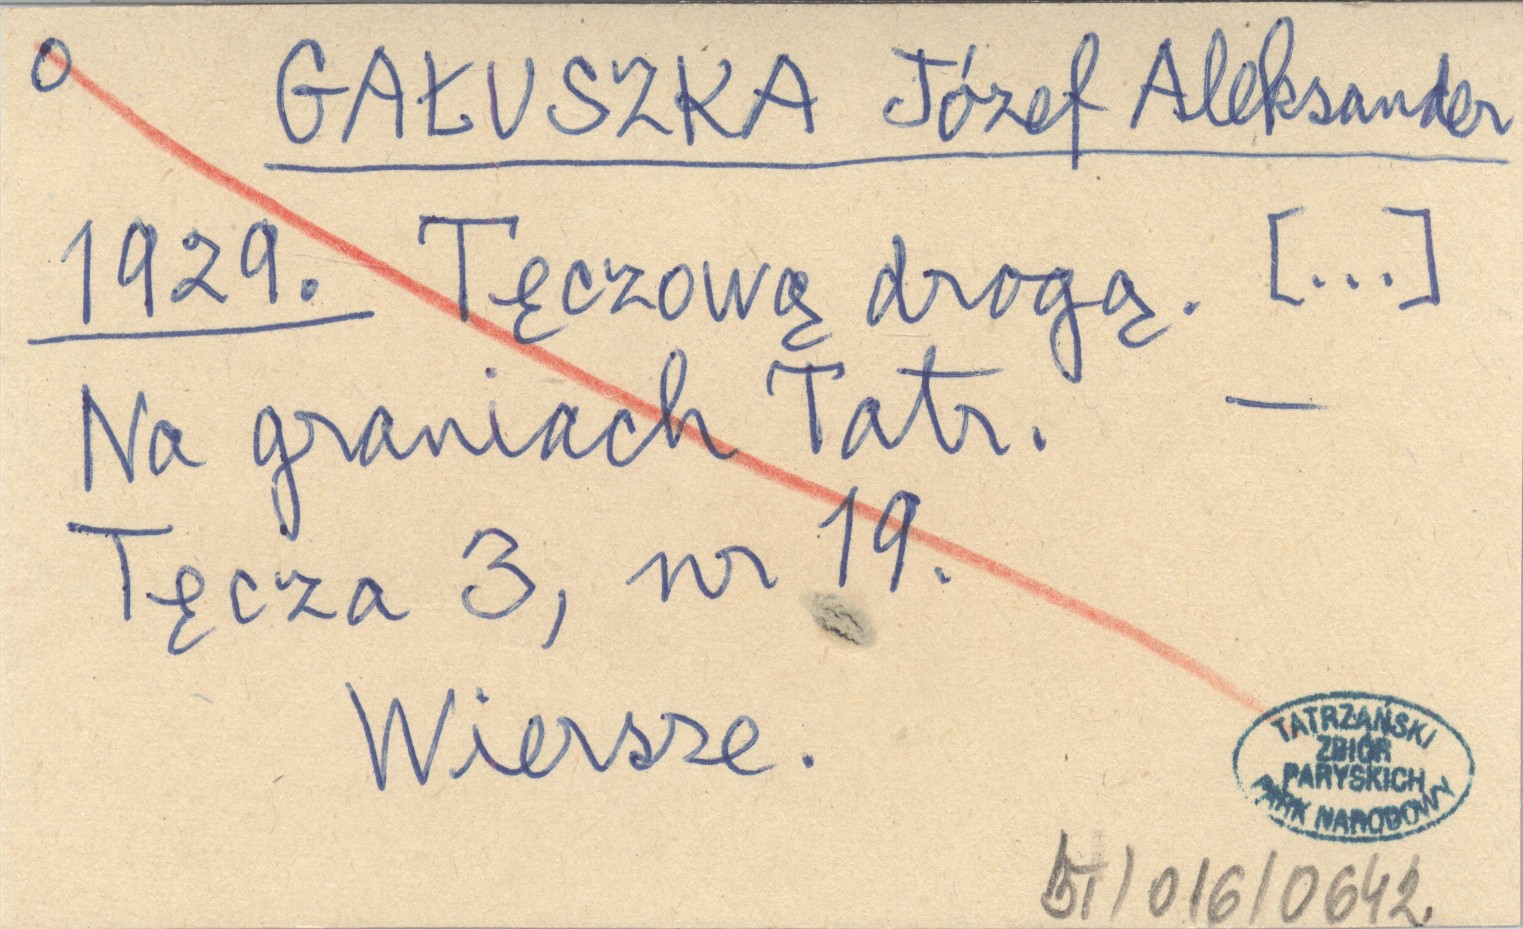 O GAŁUSZKA Józef Aleksander
1929. Tęczową drogą. [...]
Na graniach Tatr. —
Tęcza 3, nr 19.
Wiersze.
TATRZAŃSKI
ZBIÓR
PARYSKICH
PARK NARODOWY
/016/0642.